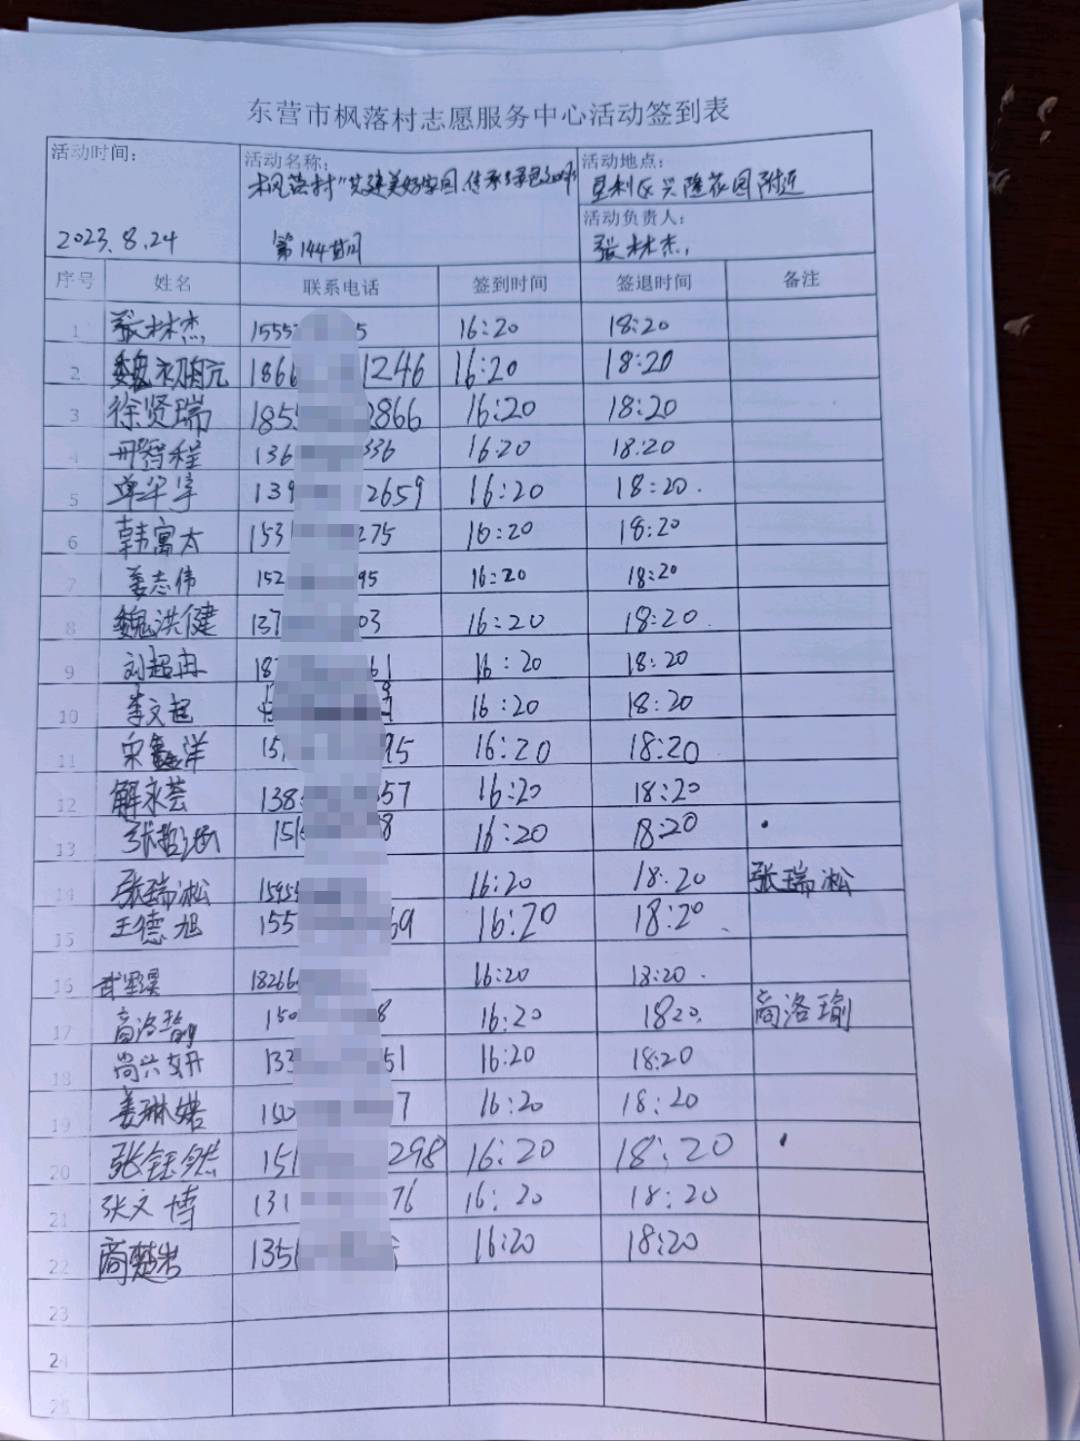 东营市枫落村志愿服务中心活动签到表
活动时间: 2023.8.24
活动名称: "枫落村"共建美好家园,传承 第144期
活动地点: 垦利区兴隆花园附近
活动负责人: 张林杰
序号 姓名 联系电话 签到时间 签退时间 备注
1 张林杰 1555 5 16:20 18:20
2 魏 1866 1246 16:20 18:20
3 徐贤瑞 185 2866 16:20 18:20
4 邢智程 136 336 16:20 18:20
5 单华宇 139 2659 16:20 18:20.
6 韩寓太 153 275 16:20 18:20
7 姜志伟 152 95 16:20 18:20
8 魏洪健 137 03 16:20 18:20.
9 刘超冉 18 61 16:20 18:20
10 李文超 16:20 18:20
11 宋鑫洋 15 95 16:20 18:20
12 解永荟 138 57 16:20 18:20
13 张 151 8 16:20 18:20
14 张瑞淞 1595 16:20 18:20 张瑞淞
15 王德旭 155 69 16:20 18:20
16 武 18266 16:20 18:20.
17 商洛瑜 150 8 16:20 18:20. 商洛瑜
18 尚兴妍 133 51 16:20 18:20
19 姜琳婼 150 7 16:20 18:20
20 张钰然 151 298 16:20 18:20
21 张文博 131 76 16:20 18:20
22 商楚岩 135 16:20 18:20
23
24
25